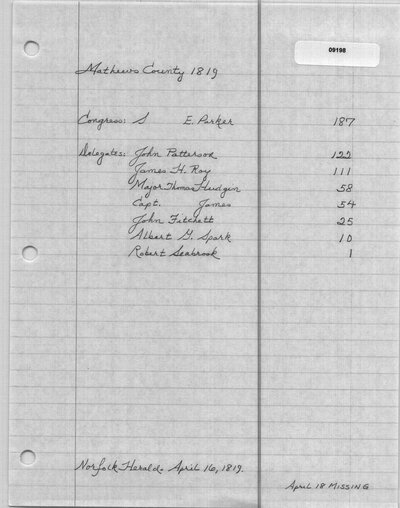 09198
Mathews County 1819
Congress: S E. Parker 187
Delegates: John Patterson 122
James H. Roy 111
Major Thomas Hudgin 58
Capt. James 54
John Fitchett 25
Albert G. Spark 10
Robert Seabrook 1
Norfolk Herald. April 16, 1819.
April 18 MISSING